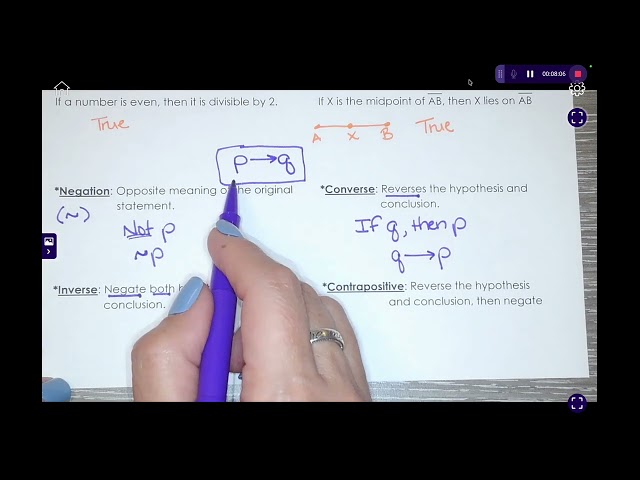 00:08:06
If a number is even, then it is divisible by 2.
True
If X is the midpoint of AB, then X lies on AB
A X B True
p → q
*Negation: Opposite meaning of the original
statement.
(~)
Not p
~p
*Converse: Reverses the hypothesis and
conclusion.
If q, then p
q → p
*Inverse: Negate both
conclusion.
*Contrapositive: Reverse the hypothesis
and conclusion, then negate